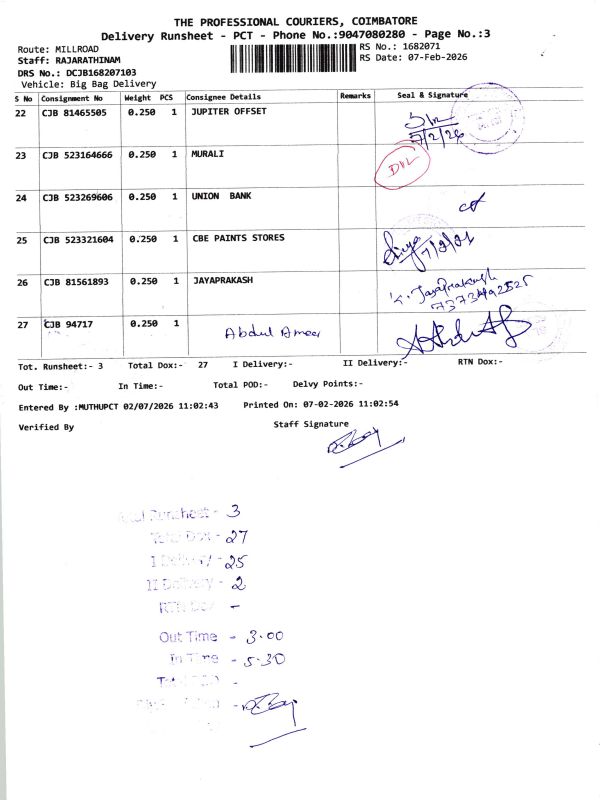 THE PROFESSIONAL COURIERS, COIMBATORE
Delivery Runsheet - PCT - Phone No.:9047080280 - Page No.:3
Route: MILLROAD RS No.: 1682071
Staff: RAJARATHINAM RS Date: 07-Feb-2026
DRS No.: DCJB168207103
Vehicle: Big Bag Delivery
S No Consignment No Weight PCS Consignee Details Remarks Seal & Signature
22 CJB 81465505 0.250 1 JUPITER OFFSET 7/2/26
23 CJB 523164666 0.250 1 MURALI D/L
24 CJB 523269606 0.250 1 UNION BANK
25 CJB 523321604 0.250 1 CBE PAINTS STORES
26 CJB 81561893 0.250 1 JAYAPRAKASH K. Jayaprakash
7373492525
27 CJB 94717 0.250 1 Abdul Ameer
Tot. Runsheet:- 3 Total Dox:- 27 I Delivery:- II Delivery:- RTN Dox:-
Out Time:- In Time:- Total POD:- Delvy Points:-
Entered By :MUTHUPCT 02/07/2026 11:02:43 Printed On: 07-02-2026 11:02:54
Verified By Staff Signature
Total Runsheet - 3
Total Dox - 27
I Delivery - 25
II Delivery - 2
RTN Dox -
Out Time - 3.00
In Time - 5.30
Total POD -